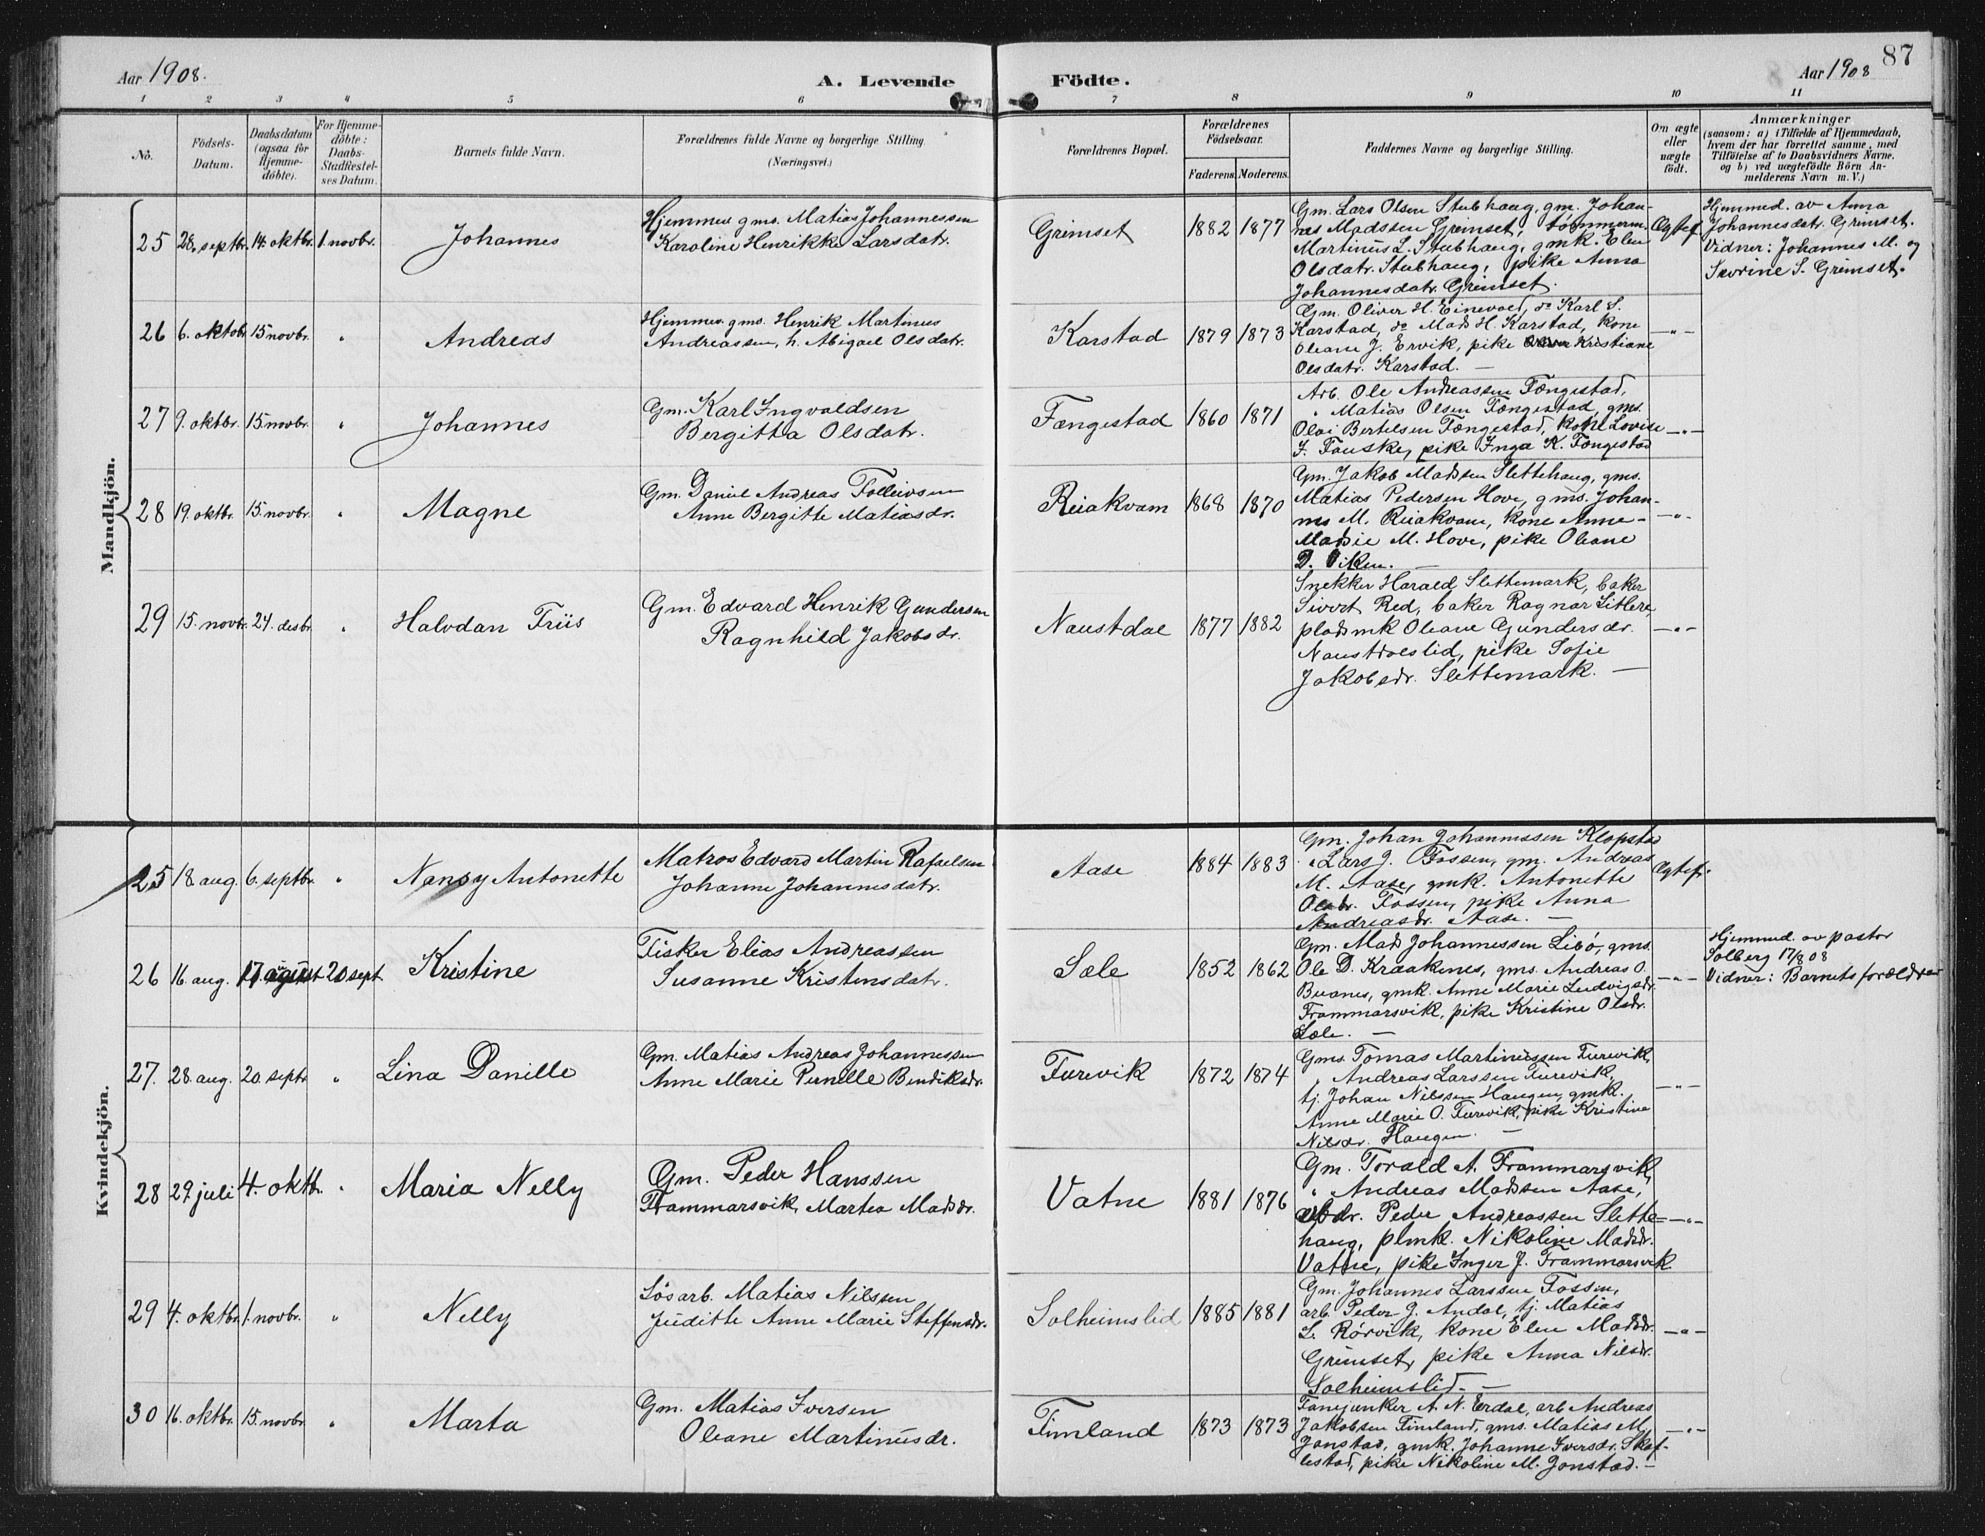 87
Aar 1908.
A. Levende Födte.
Aar 1908
1 2 3 4 5 6 7 8 9 10 11
No.
Födsels-
Datum.
Daabsdatum
(ogsaa for
Hjemme-
döbte).
For Hjemme-
döbte:
Daabs-
Stadfæstel-
ses Datum.
Barnets fulde Navn.
Forældrenes fulde Navne og borgerlige Stilling.
(Næringsvei.)
Forældrenes Bopæl.
Forældrenes
Födselsaar.
Faderens. Moderens.
Faddernes Navne og borgerlige Stilling.
Om ægte
eller
uægte
födt.
Anmærkninger
(saasom: a) i Tilfælde af Hjemmedaab,
hvem der har forrettet samme, med
Tilföielse af to Daabsvidners Navne,
og b) ved uægtefödte Börn An-
melderens Navn m. V.)
Mandkjön.
25 28. septbr. 14. oktbr. 1 novbr.
Johannes
Hjemmev. gms. Matias Johannessen
Karoline Henrikke Larsdatr.
Grimset
1882 1877
Gm. Lars Olsen Stubhaug, gm. Johan-
nes Madssen Grimset, tömmerm.
Martinus L. Stubhaug, gmk. Elen
Olsdatr. Stubhaug, pike Anna
Johannesdatr. Grimset.
Ægtef.
Hjemmed. av Anna
Johannesdatr. Grimset.
Vidner: Johannes M. og
Severine S. Grimset.
26 6. oktobr. 15 novbr. "
Andreas
Hjemmev. gms. Henrik Martinus
Andreassen, h. Abigael Olsdatr.
Karstad
1879 1873
Gm. Oliver H. Einevoed, do Karl S.
Karstad, do Mads H. Karstad, kone
Oleane J. Ervik, pike Kristiane
Olsdatr. Karstad. —
—"—
27 9. oktbr. 15. novbr. "
Johannes
Gm. Karl Ingvaldsen
Bergitta Olsdatr.
Fængestad
1860 1871
Arb. Ole Andreassen Fængestad,
" Matias Olsen Fængestad, gms.
Olai Bertelsen Fængestad, kone Lovise
J. Fauske, pike Inga K. Fængestad
—"—
28 19. oktbr. 15. novbr. "
Magne
Gm. Daniel Andreas Folleivsen
Anne Bergitte Matiasdr.
Reiakvam
1868 1870
Gm. Jakob Madssen Slettehaug, gms.
Matias Pedersen Hove, gms. Johan-
nes M. Reiakvam, kone Anne-
Madsie M. Hove, pike Oleane
D. Viken. —
—"—
29 15. novbr. 27. desbr. "
Halvdan Friis
Gm. Edvard Henrik Gundersen
Ragnhild Jakobsdr.
Naustdal
1877 1882
Snekker Harald Slettemark, baker
Sivert Red, baker Ragnar Litlere,
pladsmk Oleane Gundersdr.
Naustdalslid, pike Sofie
Jakobsdr. Slettemark. —
—"—
Kvindekjön.
25 18 aug. 6. septbr. "
Nancy Antonette
Matros Edvard Martin Rafaelsen
Johanne Johannesdatr.
Aase
1884 1883
Gm. Johan Johannessen Klopstad
" Lars J. Fossen, gm. Andreas
M. Aase, gmk. Antonette
Olsdr. Fossen, pike Anna
Andreasdr. Aase. —
Ægtef.
26 16 aug. 17 august 20 sept
Kristine
Fisker Elias Andreassen
Susanne Kristensdatr.
Sæle
1852 1862
Gm. Mads Johannessen Libö, gms.
Ole D. Kraakenes, gms. Andreas O.
Buanes, gmk. Anne Marie Ludvigsdr.
Frammarsvik, pike Kristine Olsdr.
Sæle. —
—"—
Hjemmed. av pastor
Solberg 17/8 08
Vidner: Barnets forældre
27. 28. aug. 20. septr "
Lina Danille
Gm. Matias Andreas Johannessen
Anne Marie Pernille Bendiksdr.
Furevik
1872 1874
Gms. Tomas Martinussen Furevik,
" Andreas Larssen Furevik,
tj. Johan Nilssen Haugen, gmk.
Anne Marie O. Furevik, pike Kristine
Nilsdr. Haugen. —
—"—
28 29 juli 4. oktbr. "
Maria Nelly
Gm. Peder Hanssen
Frammarsvik, Martea Madsdr.
Vatne
1881 1876
Gm. Torald A. Frammarsvik,
" Andreas Madssen Aase,
arbdr. Peder Andreassen Slette-
haug, plmk. Nikoline Madsdr.
Vatne, pike Inger J. Frammarsvik
—"—
29 4. oktbr. 1. novbr. "
Nelly
Løsarb. Matias Nilssen
Juditte Anne Marie Steffensdr.
Solheimslid
1885 1881
Gm. Johannes Larssen Fossen,
arb. Peder J. Andal, tj. Matias
L. Rörvik, kone Elen Madsdr.
Grimset, pike Anna Nilsdr.
Solheimslid. —
—"—
30 16. oktbr. 15. novbr. "
Marta
Gm. Matias Iversen
Oleane Martinusdr.
Timland
1873 1873
Fanejunker A. N. Erdal, arb Andreas
Jakobsen Timland, gms. Matias M.
Jonstad, gmk. Johanne Iversdr. Skaf-
lestad, pike Nikoline M. Jonstad. —
—"—